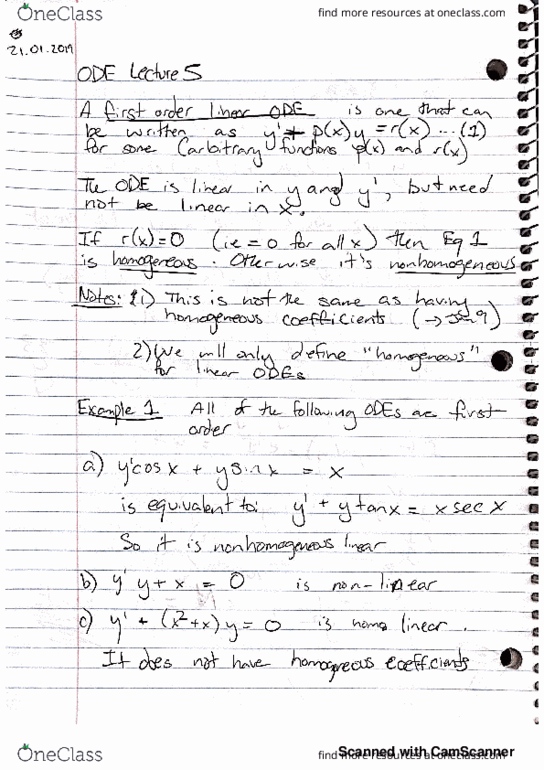 OneClass
find more resources at oneclass.com
21.01.2019
ODE Lecture 5
A first order linear ODE is one that can
be written as y' + p(x)y = r(x) ... (1)
for some (arbitrary) functions p(x) and r(x)
The ODE is linear in y and y', but need
not be linear in x.
If r(x)=0 (ie = 0 for all x) then Eq 1
is homogeneous. Otherwise it's nonhomogeneous.
Notes: 1) This is not the same as having
homogeneous coefficients
2) We will only define "homogenous"
for linear ODEs
Example 1 All of the following ODEs are first
order
a) y'cos x + y sin x = x
is equivalent to: y' + y tan x = x sec x
So it is nonhomogeneous linear
b) y' y + x = 0 is non-linear
c) y' + (x²+x) y = 0 is homo linear.
It does not have homogeneous coefficients
OneClass
find more resources at oneclass.com
Scanned with CamScanner